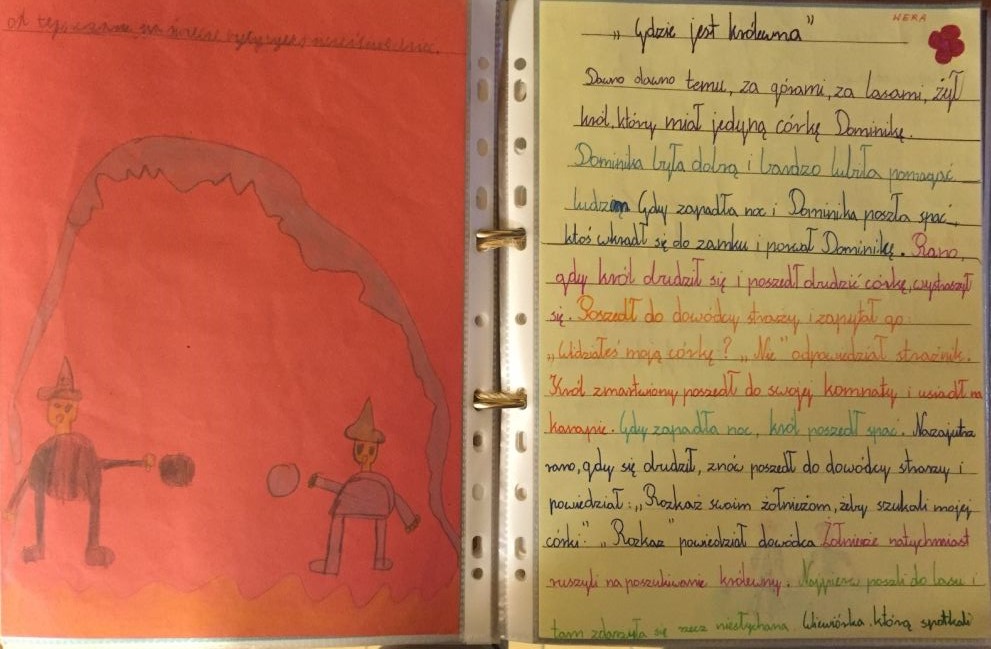 od tego czasu na świecie były
WERA
„Gdzie jest królewna"
Dawno dawno temu, za górami, za lasami, żył
król, który miał jedyną córkę Dominikę.
Dominika była dobrą i bardzo lubiła pomagać
ludziom Gdy zapadła noc i Dominika poszła spać,
ktoś wkradł się do zamku i porwał Dominikę. Rano,
gdy król obudził się i poszedł obudzić córkę, wystraszył
się. Poszedł do dowódcy straży i zapytał go:
„Widziałeś moją córkę? „Nie" odpowiedział strażnik.
Król zmartwiony poszedł do swojej komnaty i usiadł na
kanapie. Gdy zapadła noc, król poszedł spać. Nazajutrz
rano, gdy się obudził, znów poszedł do dowódcy straży i
powiedział: „Rozkaż swoim żołnieżom, żeby szukali mojej
córki." „Rozkaz" powiedział dowódca Żołnieże natychmiast
ruszyli na poszukiwanie królewny. Najpierw poszli do lasu i
tam zdarzyła się rzecz niesłychana. Wiewiórka, którą spotkali